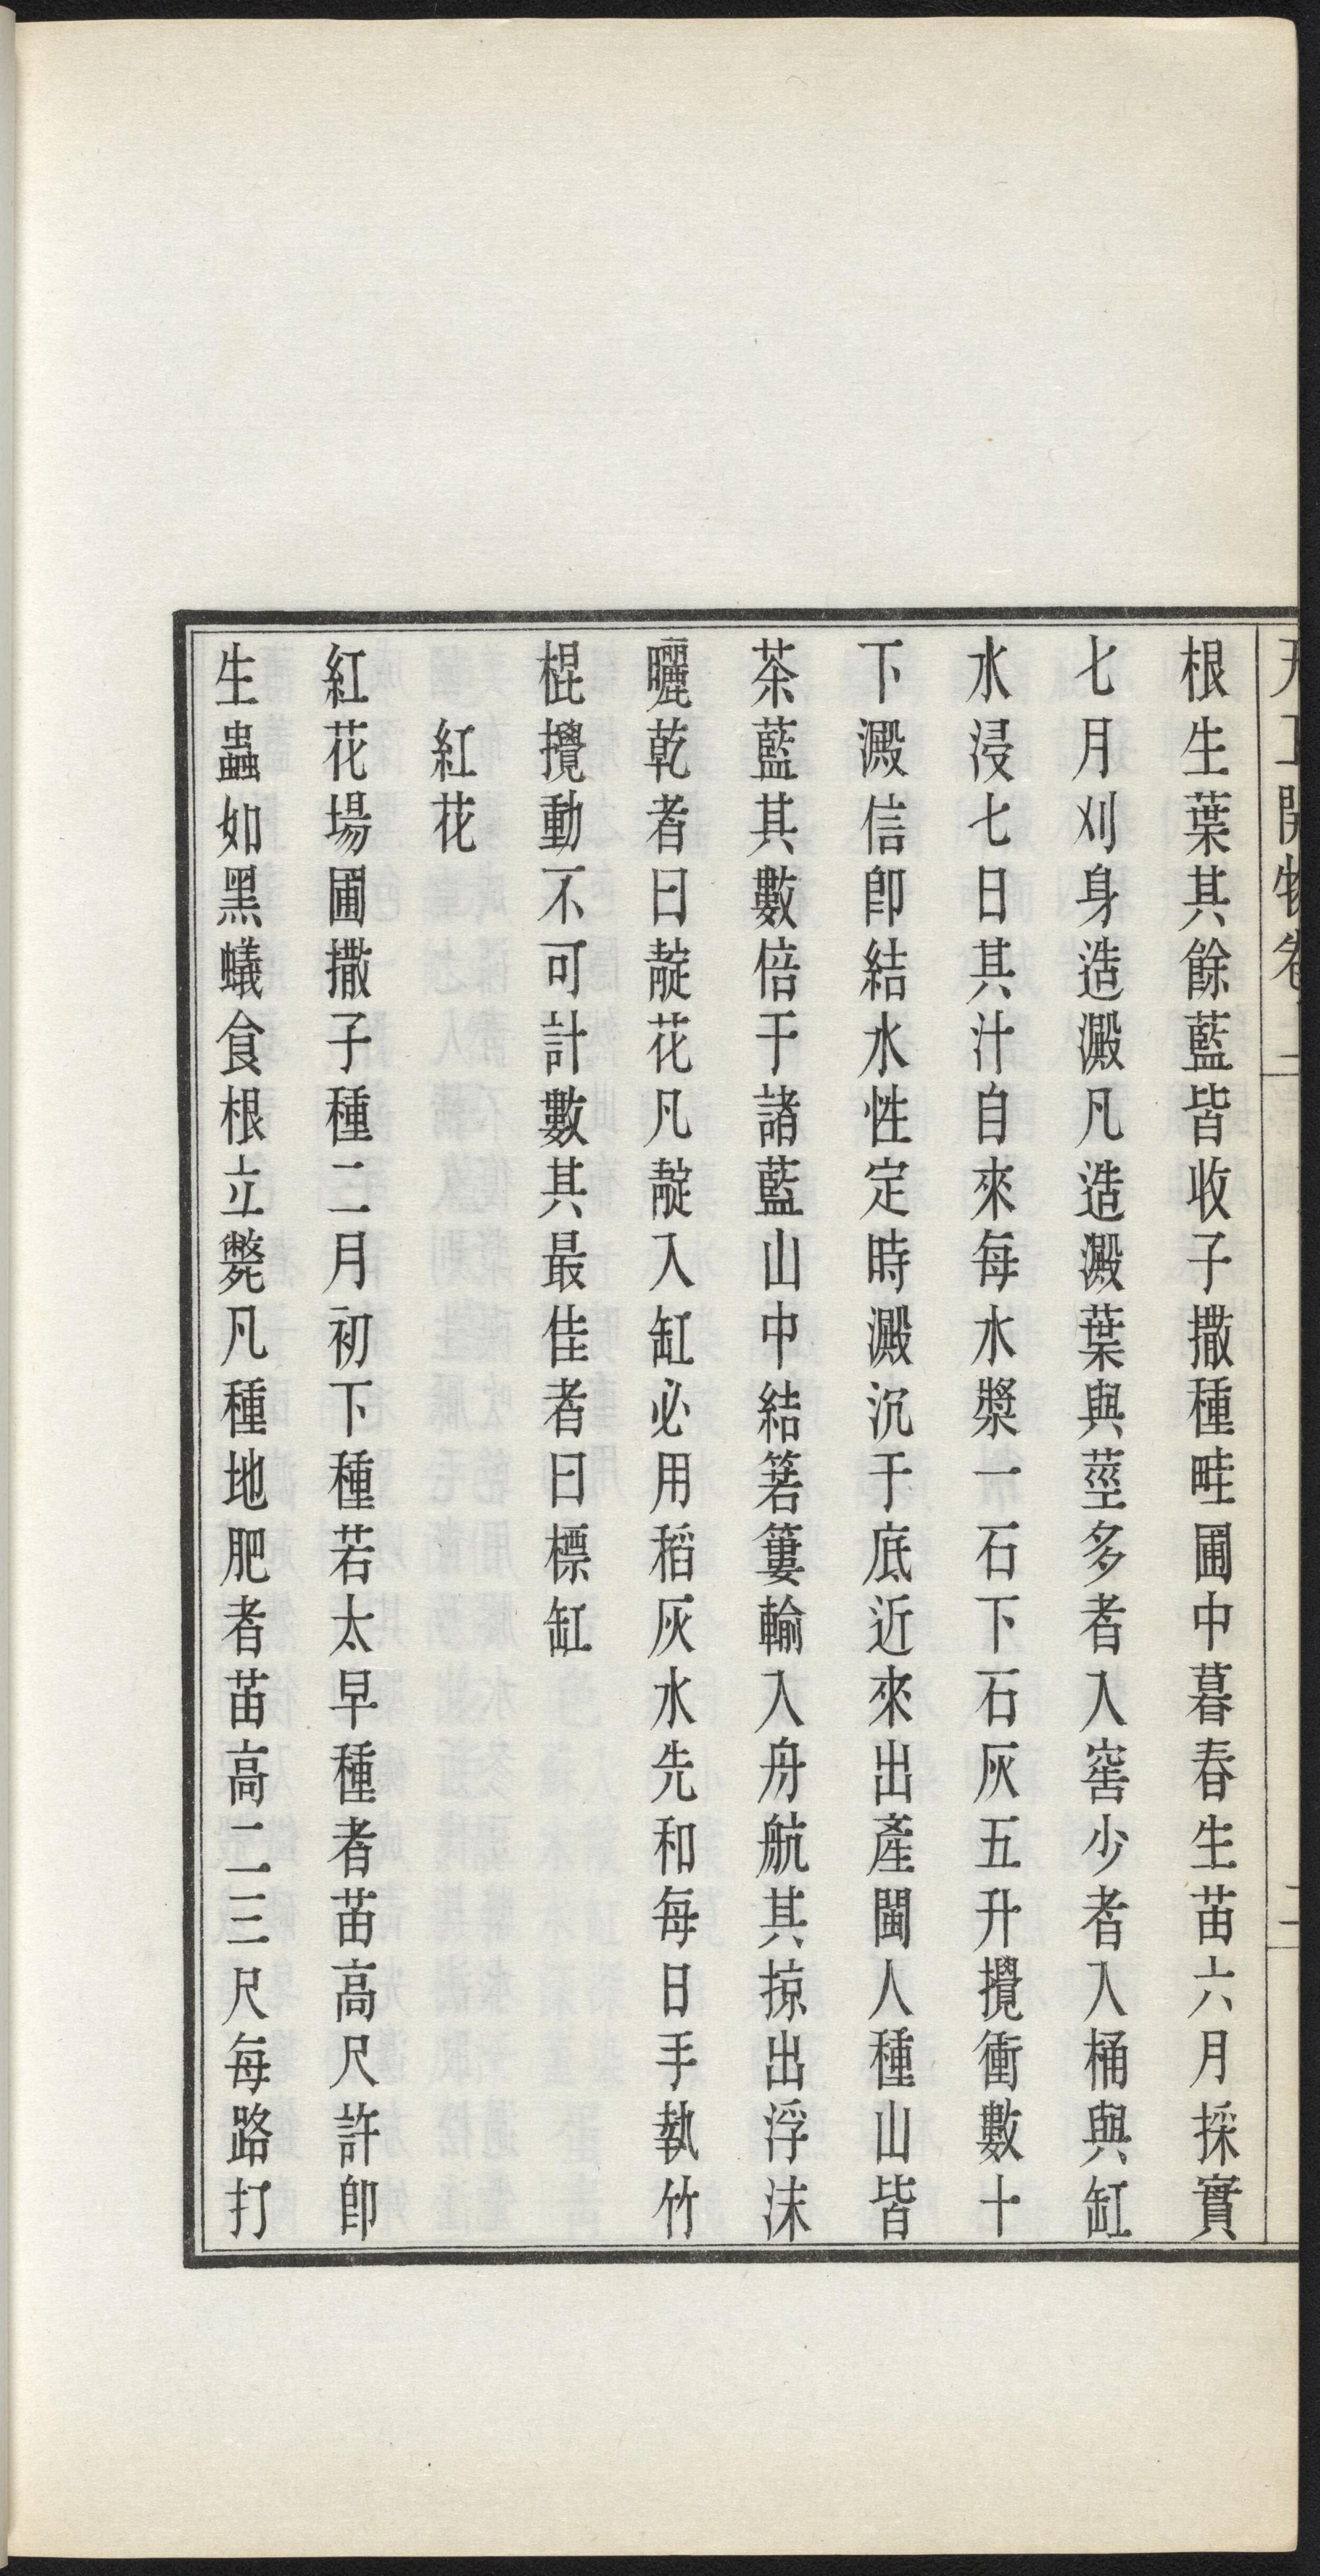 天工開物卷上
二
根生葉其餘藍皆收子撒種畦圃中暮春生苗六月採實
七月刈身造澱凡造澱葉與莖多者入窖少者入桶與缸
水浸七日其汁自來每水漿一石下石灰五升攪衝數十
下澱信卽結水性定時澱沉于底近來出產閩人種山皆
茶藍其數倍于諸藍山中結箬簍輸入舟航其掠出浮沫
曬乾者曰靛花凡靛入缸必用稻灰水先和每日手執竹
棍攪動不可計數其最佳者曰標缸
紅花
紅花場圃撒子種二月初下種若太早種者苗高尺許卽
生蟲如黑蟻食根立斃凡種地肥者苗高二三尺每路打